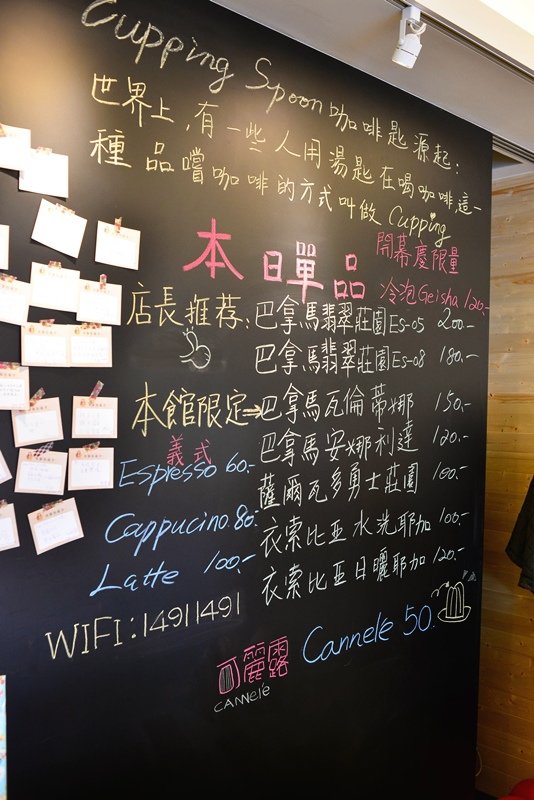 Cupping Spoon 咖啡匙 源起:
世界上,有一些人用湯匙在喝咖啡,這一
種品嚐咖啡的方式叫做 Cupping
本日單品
開幕慶限量
冷泡Geisha 120.-
店長推荐: 巴拿馬翡翠莊園Es-05 200.-
巴拿馬翡翠莊園Es-08 180.-
本館限定⇒巴拿馬瓦倫蒂娜 150.-
義式 巴拿馬安娜利達 120.-
Espresso 60.- 薩爾瓦多勇士莊園 100.-
Cappucino 80.- 衣索比亞水洗耶加 100.-
Latte 100.- 衣索比亞日曬耶加 120.-
WIFI:14911491
可麗露 Cannelé 50.-
CANNElé